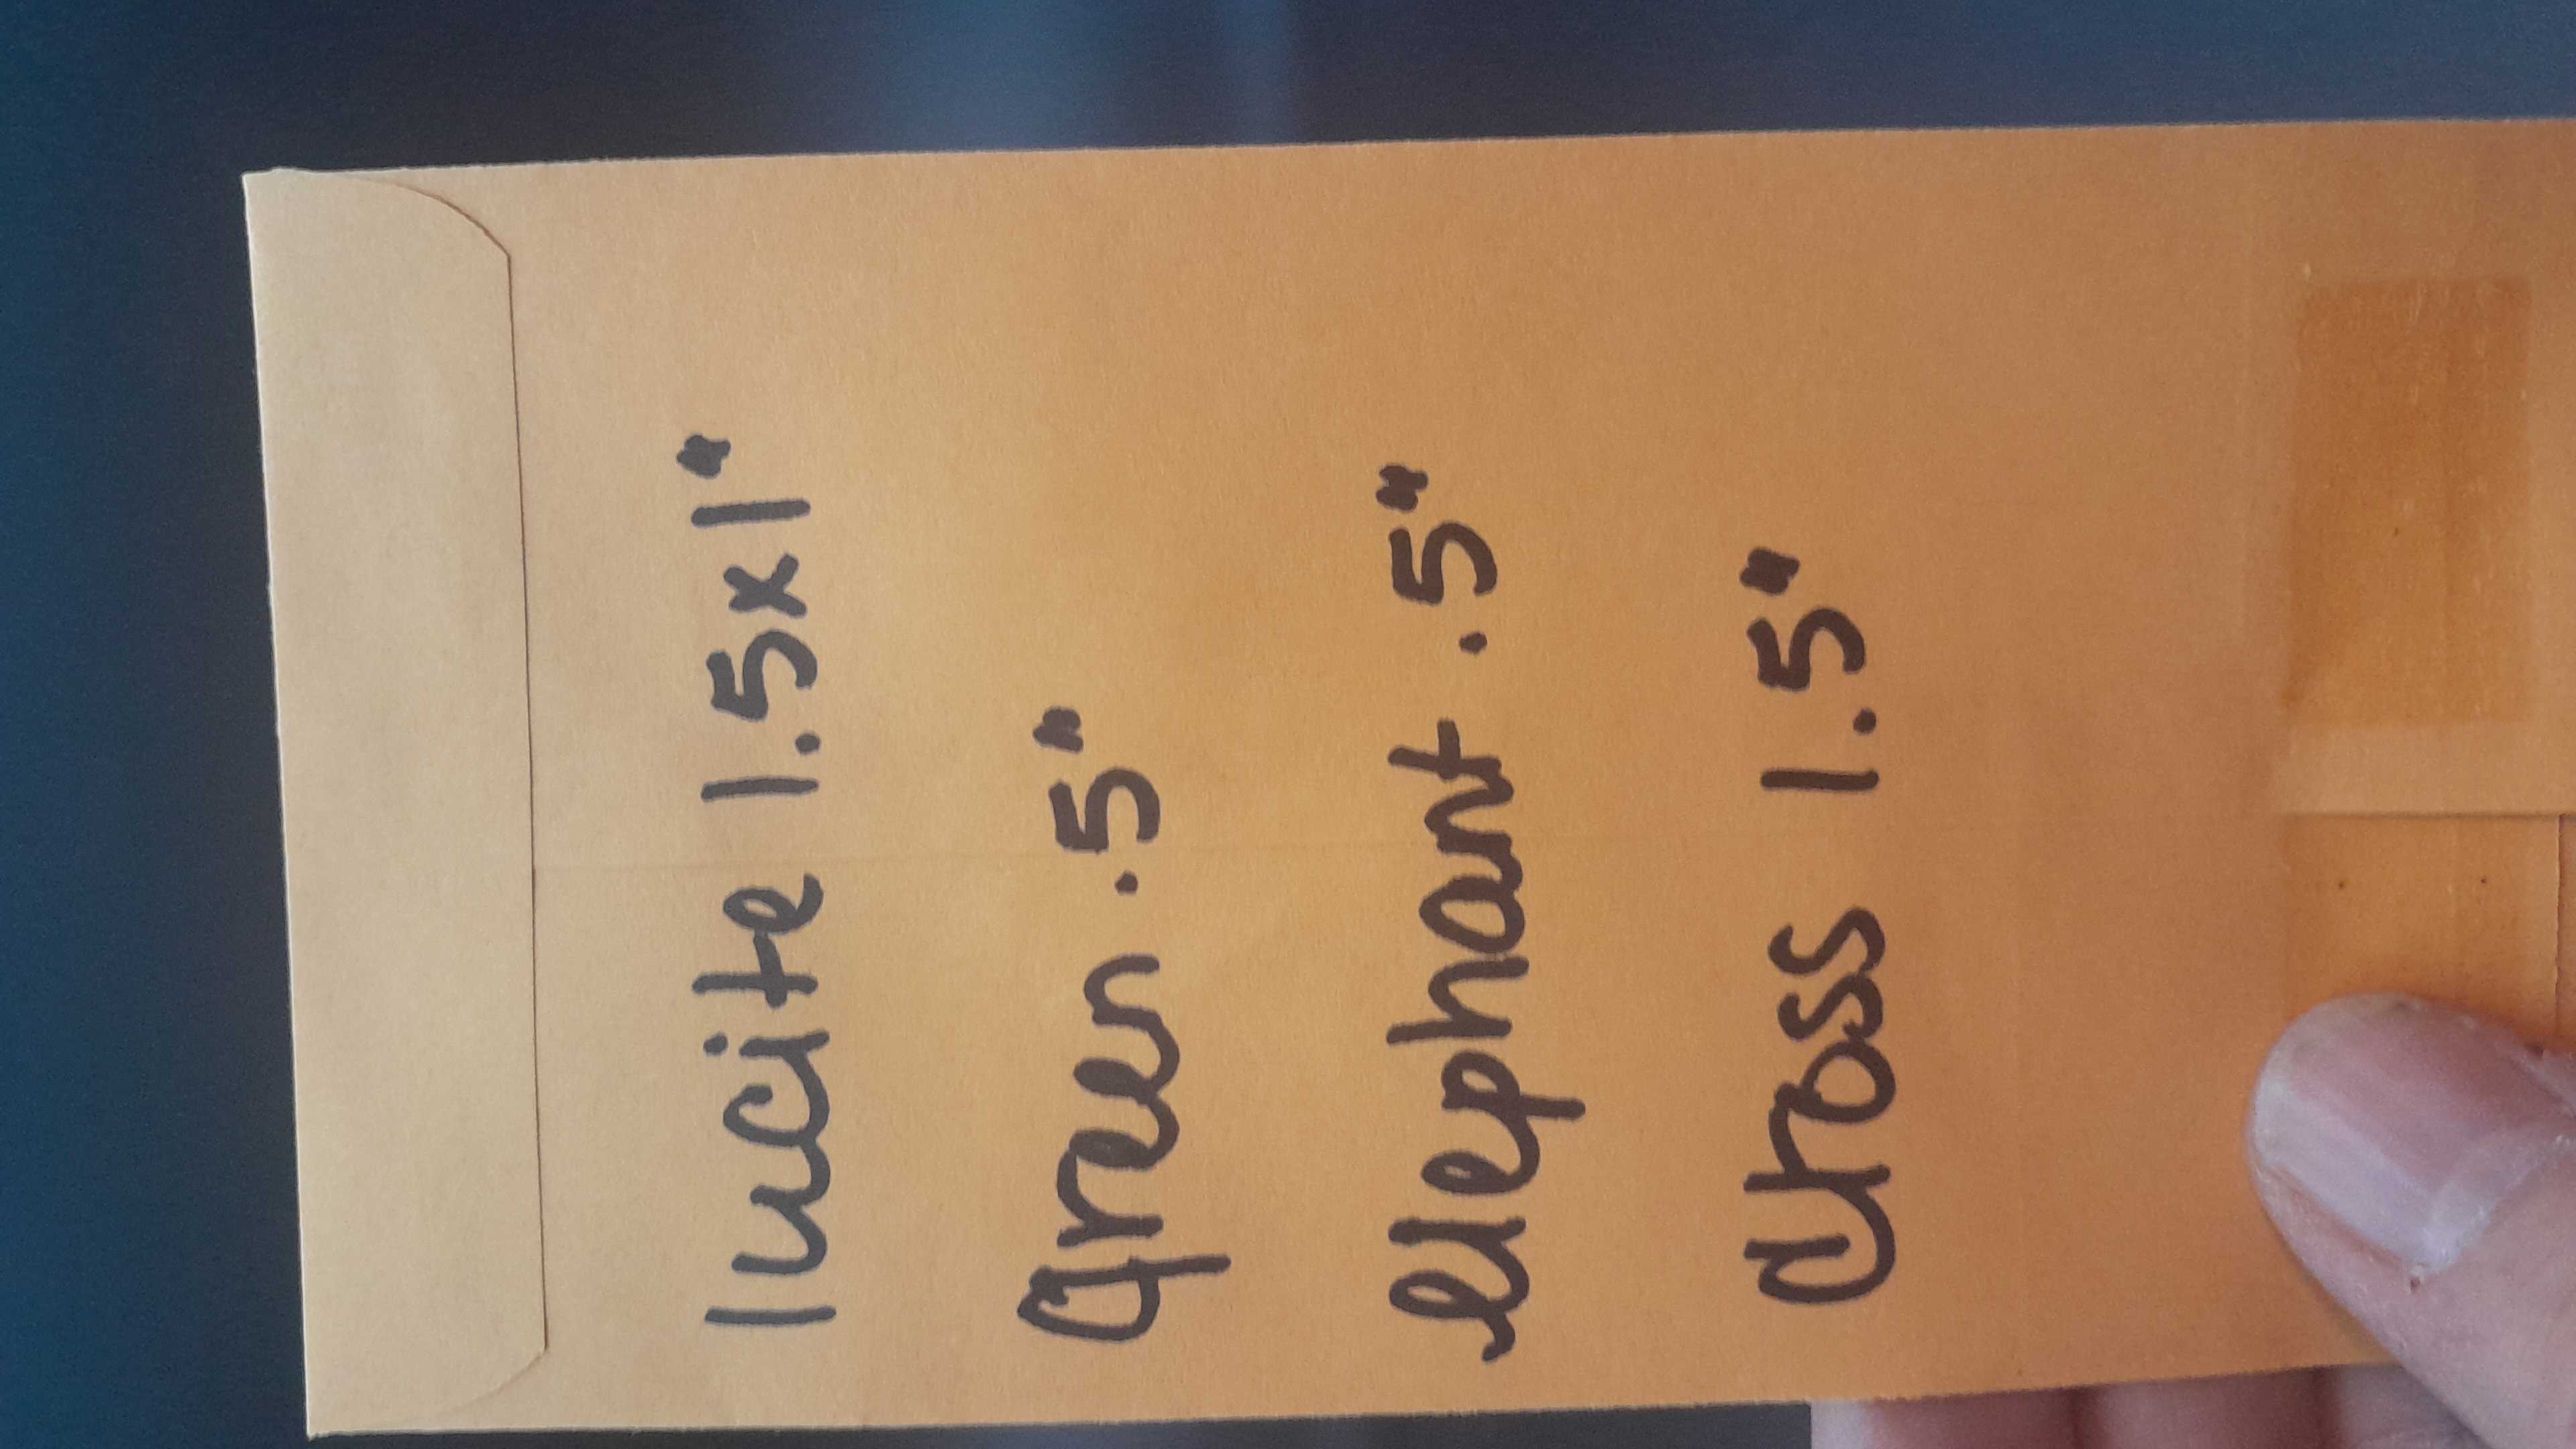 lucite 1.5x1"
Green .5"
elephant .5"
Cross 1.5"